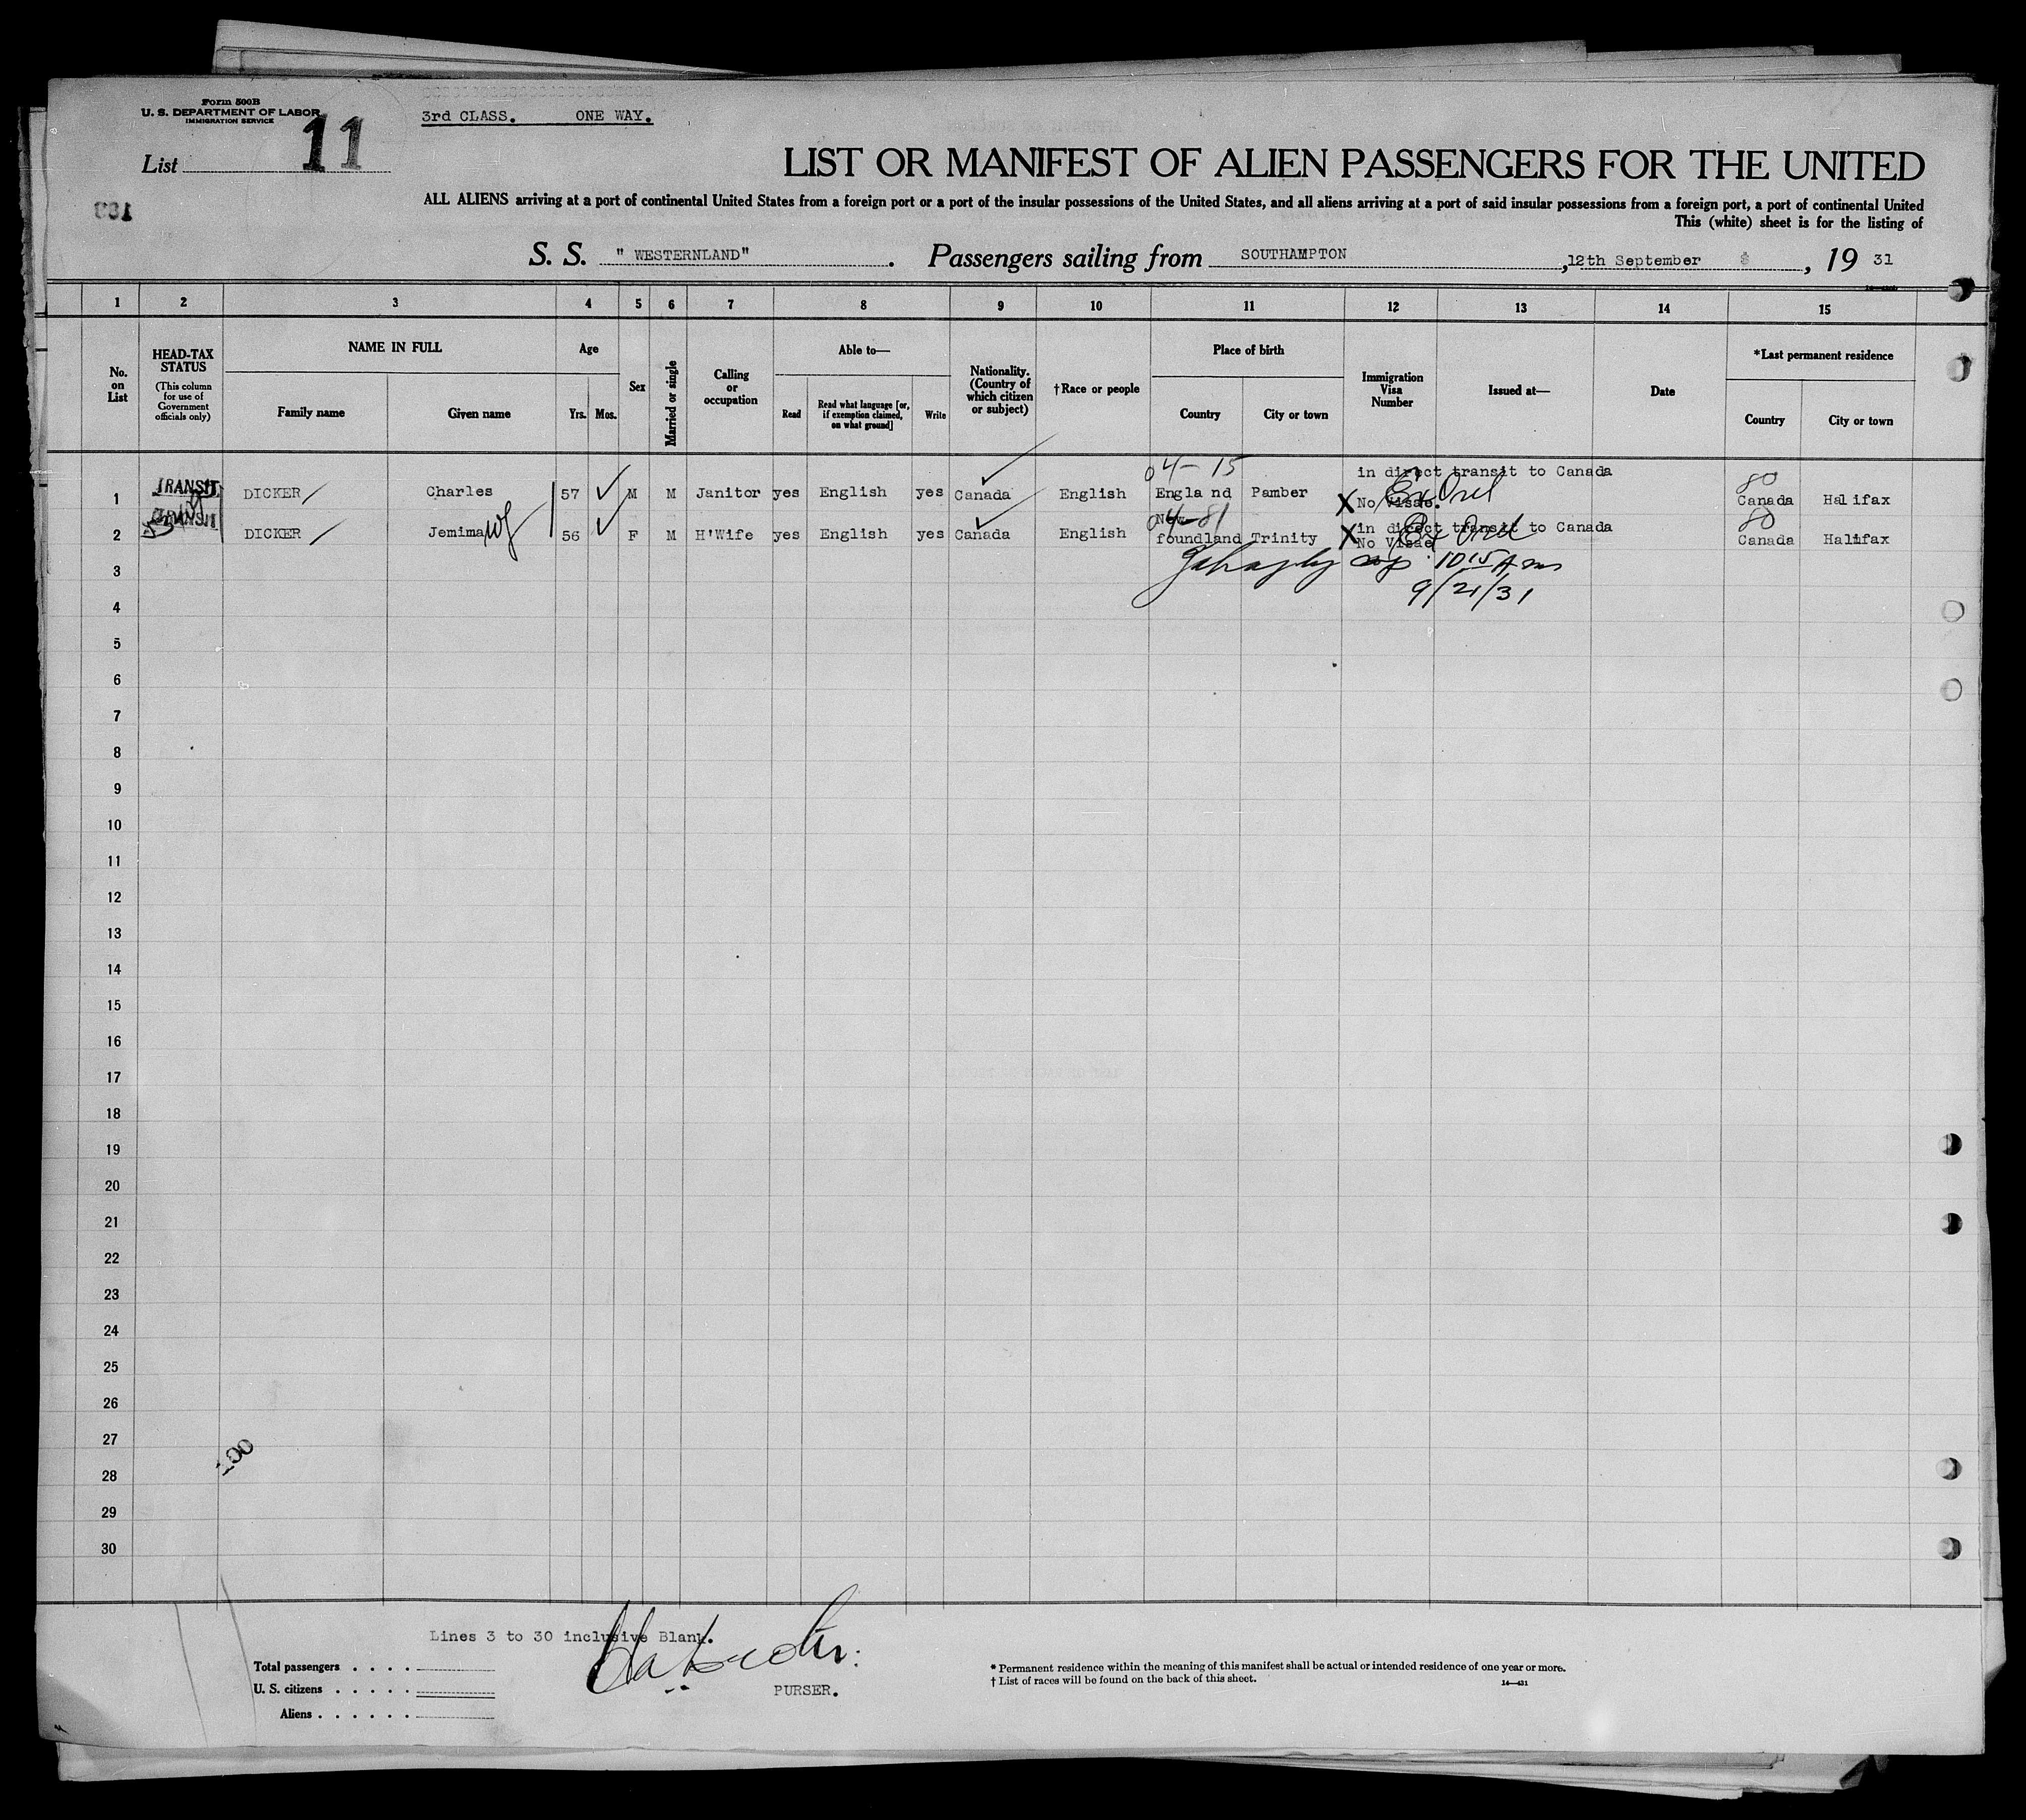 Form 500B
U. S. DEPARTMENT OF LABOR
IMMIGRATION SERVICE
3rd CLASS. ONE WAY.
List 11
LIST OR MANIFEST OF ALIEN PASSENGERS FOR THE UNITED
ALL ALIENS arriving at a port of continental United States from a foreign port or a port of the insular possessions of the United States, and all aliens arriving at a port of said insular possessions from a foreign port, a port of continental United
This (white) sheet is for the listing of
S. S. " WESTERNLAND" . Passengers sailing from SOUTHAMPTON , 12th September , 19 31
1 2 3 4 5 6 7 8 9 10 11 12 13 14 15
No. on List
HEAD-TAX STATUS
(This column for use of Government officials only)
NAME IN FULL
Family name
Given name
Age
Yrs.
Mos.
Sex
Married or single
Calling or occupation
Able to—
Read
Read what language [or, if exemption claimed, on what ground]
Write
Nationality. (Country of which citizen or subject)
†Race or people
Place of birth
Country
City or town
Immigration Visa Number
Issued at—
Date
*Last permanent residence
Country
City or town
04-15
in direct transit to Canada
80
1 TRANSIT DICKER Charles 57 M M Janitor yes English yes Canada English Engla nd Pamber X No Visae. Canada Halifax
New 04-81 in direct transit to Canada 80
2 TRANSIT DICKER Jemima wf 56 F M H'Wife yes English yes Canada English foundland Trinity X No Visae Canada Halifax
3 10 15 Am
4 9/21/31
5
6
7
8
9
10
11
12
13
14
15
16
17
18
19
20
21
22
23
24
25
26
27
100
28
29
30
Lines 3 to 30 inclusive Blank.
Total passengers . . . .
U. S. citizens . . . . .
Aliens . . . . . .
PURSER.
* Permanent residence within the meaning of this manifest shall be actual or intended residence of one year or more.
† List of races will be found on the back of this sheet.
14—431